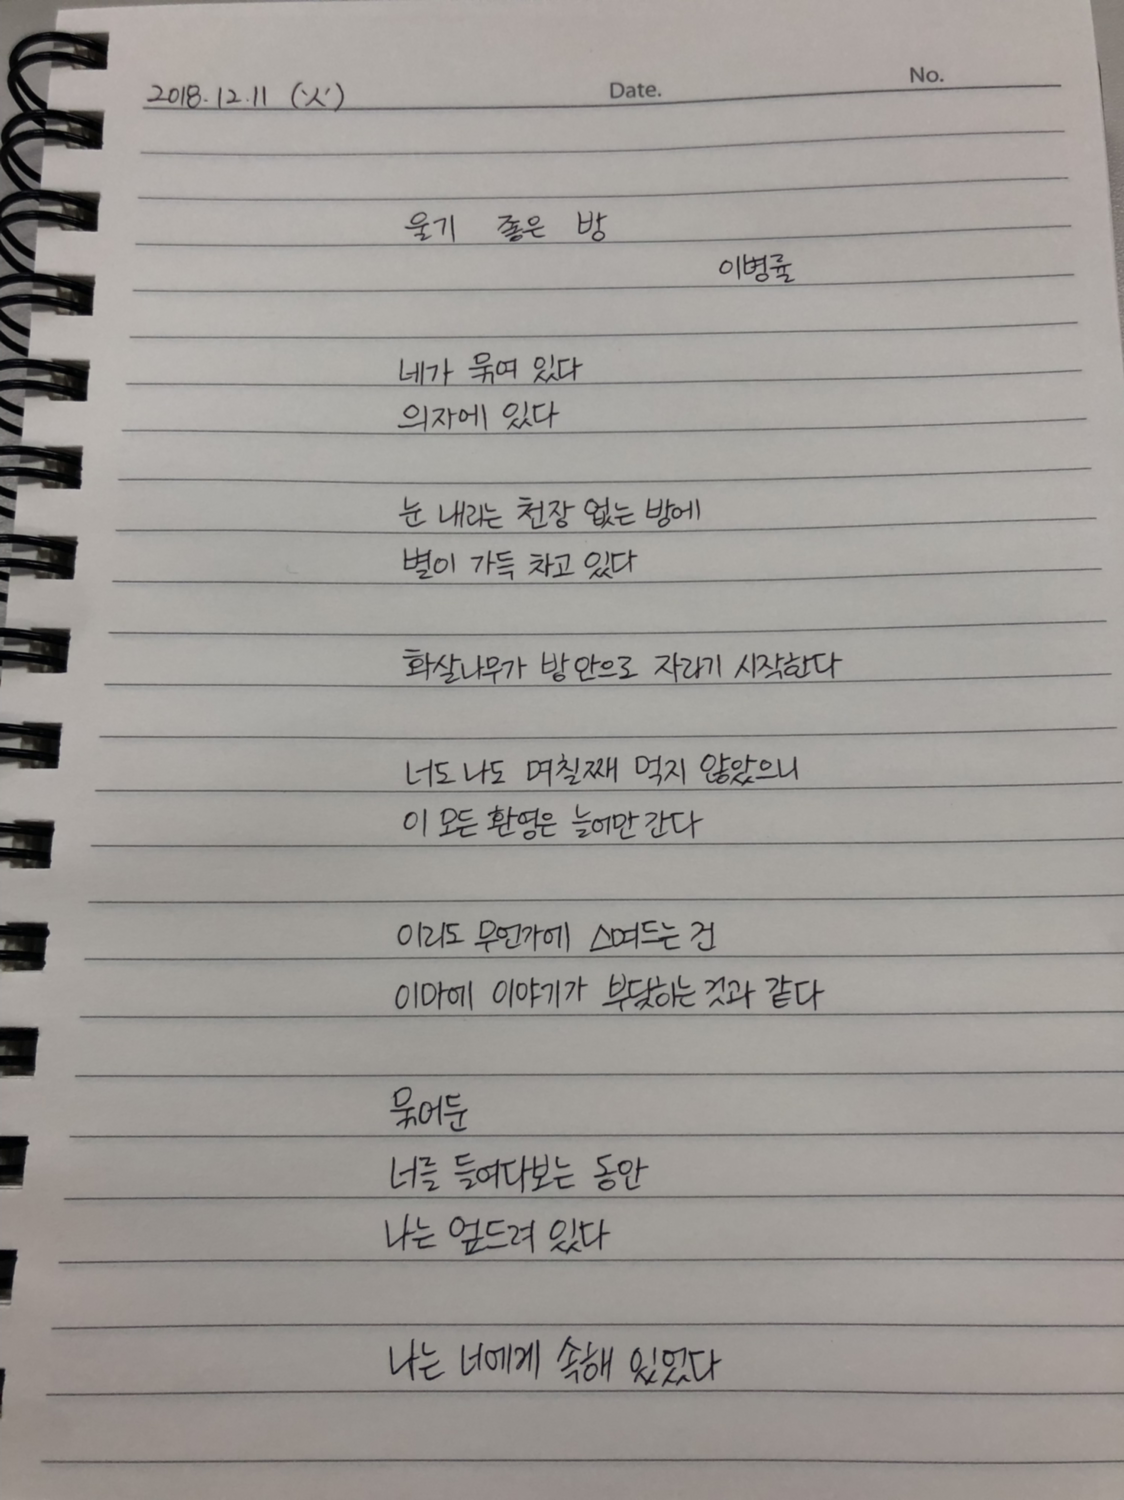 2018.12.11 (火)
Date.
No.
울기 좋은 방
이병률
네가 묶여 있다
의자에 있다
눈 내리는 천장 없는 방에
별이 가득 차고 있다
화살나무가 방 안으로 자라기 시작한다
너도 나도 며칠째 먹지 않았으니
이 모든 환영은 늘어만 간다
이리도 무언가에 스며드는 건
이마에 이야기가 부딪히는 것과 같다
묶어둔
너를 들여다보는 동안
나는 엎드려 있다
나는 너에게 속해 있었다